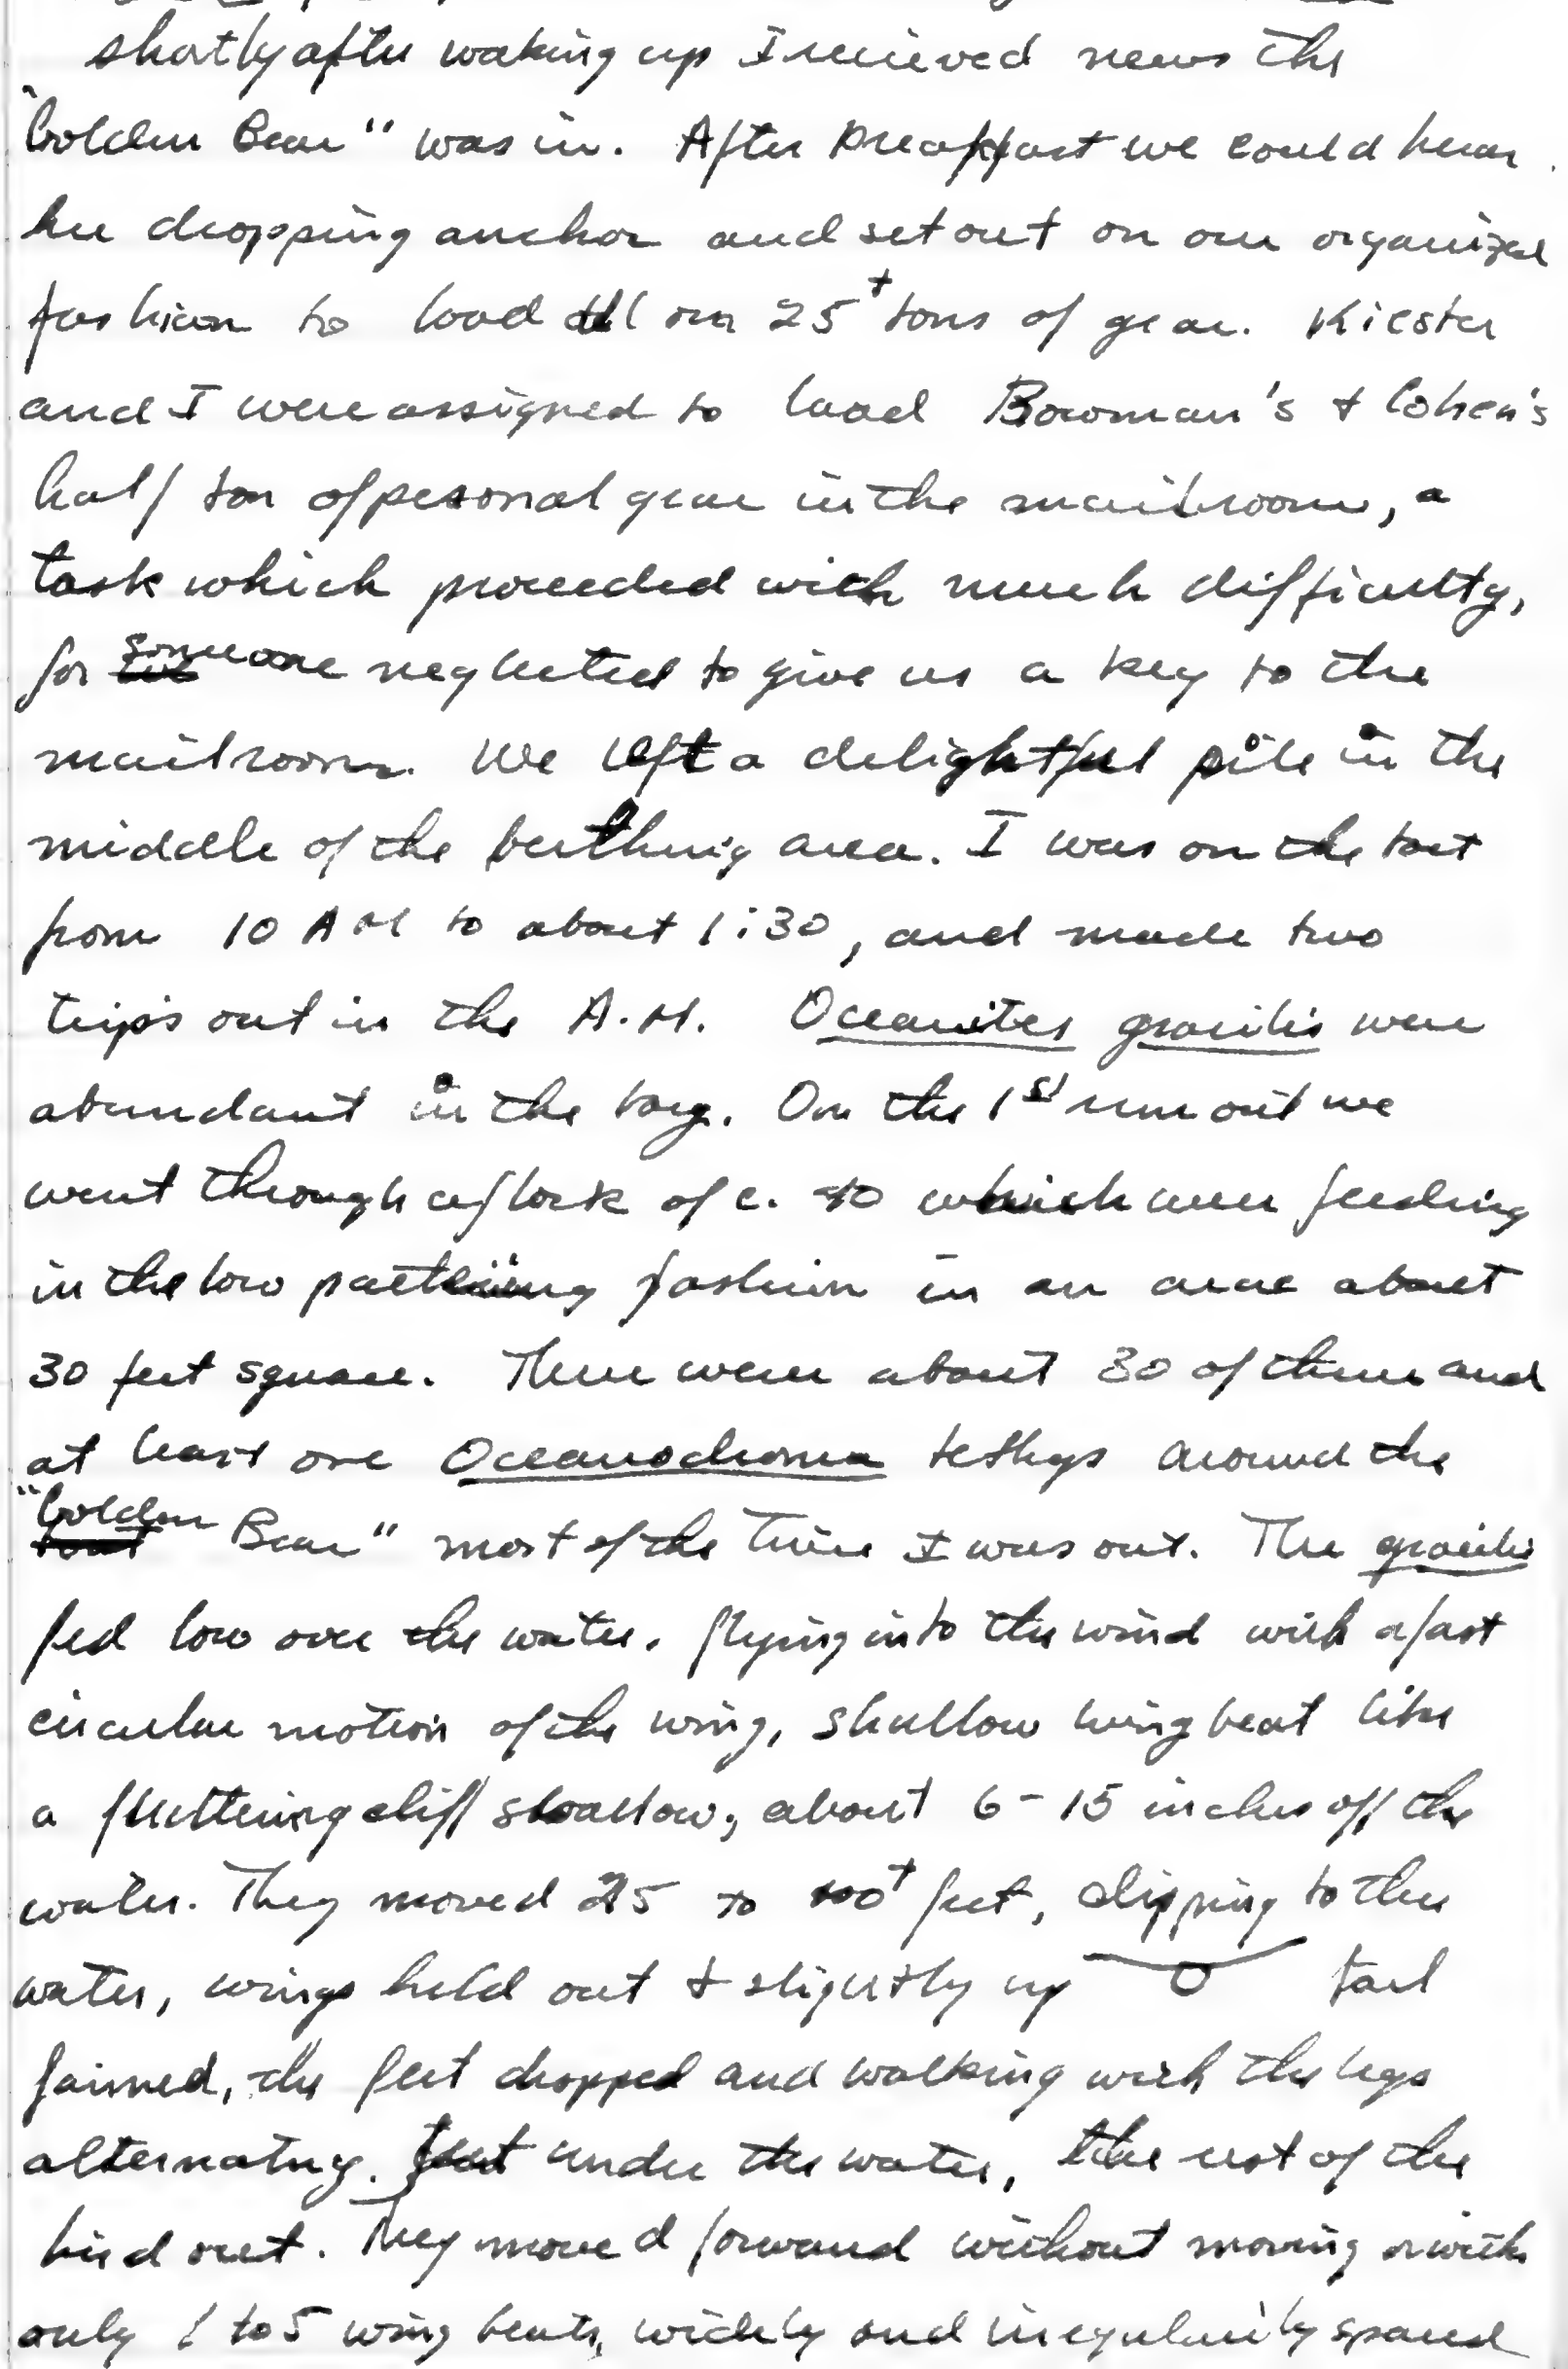 shortly after waking up I recieved news the
"Golden Bear" was in. After breakfast we could hear
her dropping anchor and set out on our organized
fashion to load all our 25+ tons of gear. Kiester
and I were assigned to load Bowman's + Cohen's
half ton of pesonal gear in the mailroom, a
task which proceeded with much difficulty,
for someone neglected to give us a key to the
mailroom. We left a delightful pile in the
middle of the berthing area. I was on the boat
from 10 AM to about 1:30, and made two
trips out in the A.M. Oceanites gracilis were
abundant in the bay. On the 1st run out we
went through a flock of c. 40 which were feeding
in the low pattering fashion in an area about
30 feet square. There were about 30 of them and
at least one Oceanodroma tethys around the
"Golden Bear" most of the time I was out. The gracilis
fed low over the water, flying into the wind with a fast
circular motion of the wing, shallow wing beat like
a fluttering cliff swallow, about 6-15 inches off the
water. They moved 25 to 100+ feet, dipping to the
water, wings held out + slightly up tail
fanned, the feet dropped and walking with the legs
alternatng. feet under the water, the rest of the
bird out. They moved forward without moving or with
only 1 to 5 wing beats, widely and irregularily spaced